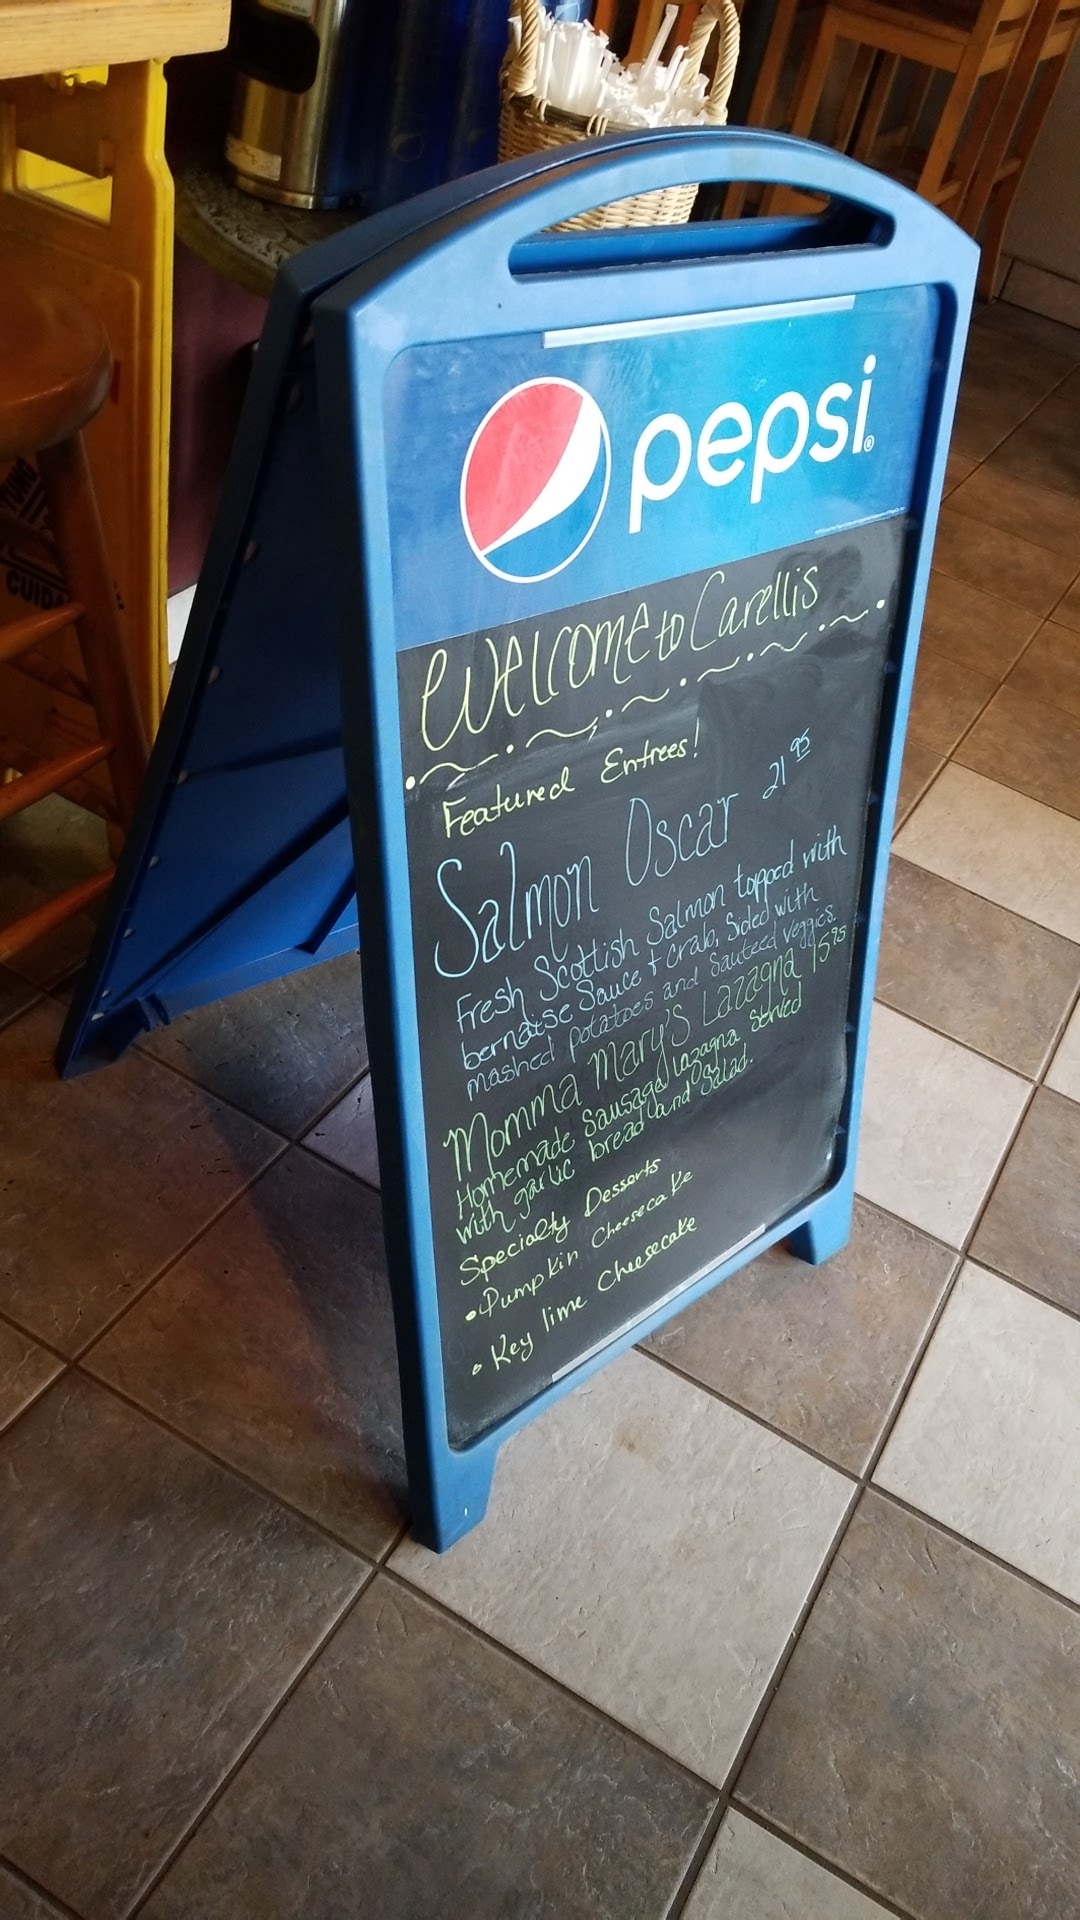 pepsi®
Welcome to Carellis
Featured Entrees!
Salmon Oscar 21 95
Fresh Scottish Salmon topped with
bernaise Sauce + Crab, Sided with
mashed potatoes and Sauteed veggies.
Momma Mary's Lazagna 15 95
Homemade Sausage lazagna Served
with garlic bread and Salad.
Specialty Desserts
• Pumpkin Cheesecake
• Key lime Cheesecake
CUIDA